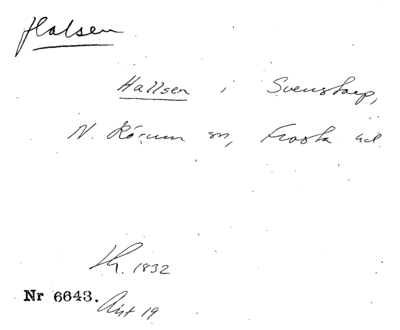 Halsen
Hallsen i Svenstorp,
N. Rörum sn, Frosta hd
Lh. 1832
Nr 6643.
Akt 19